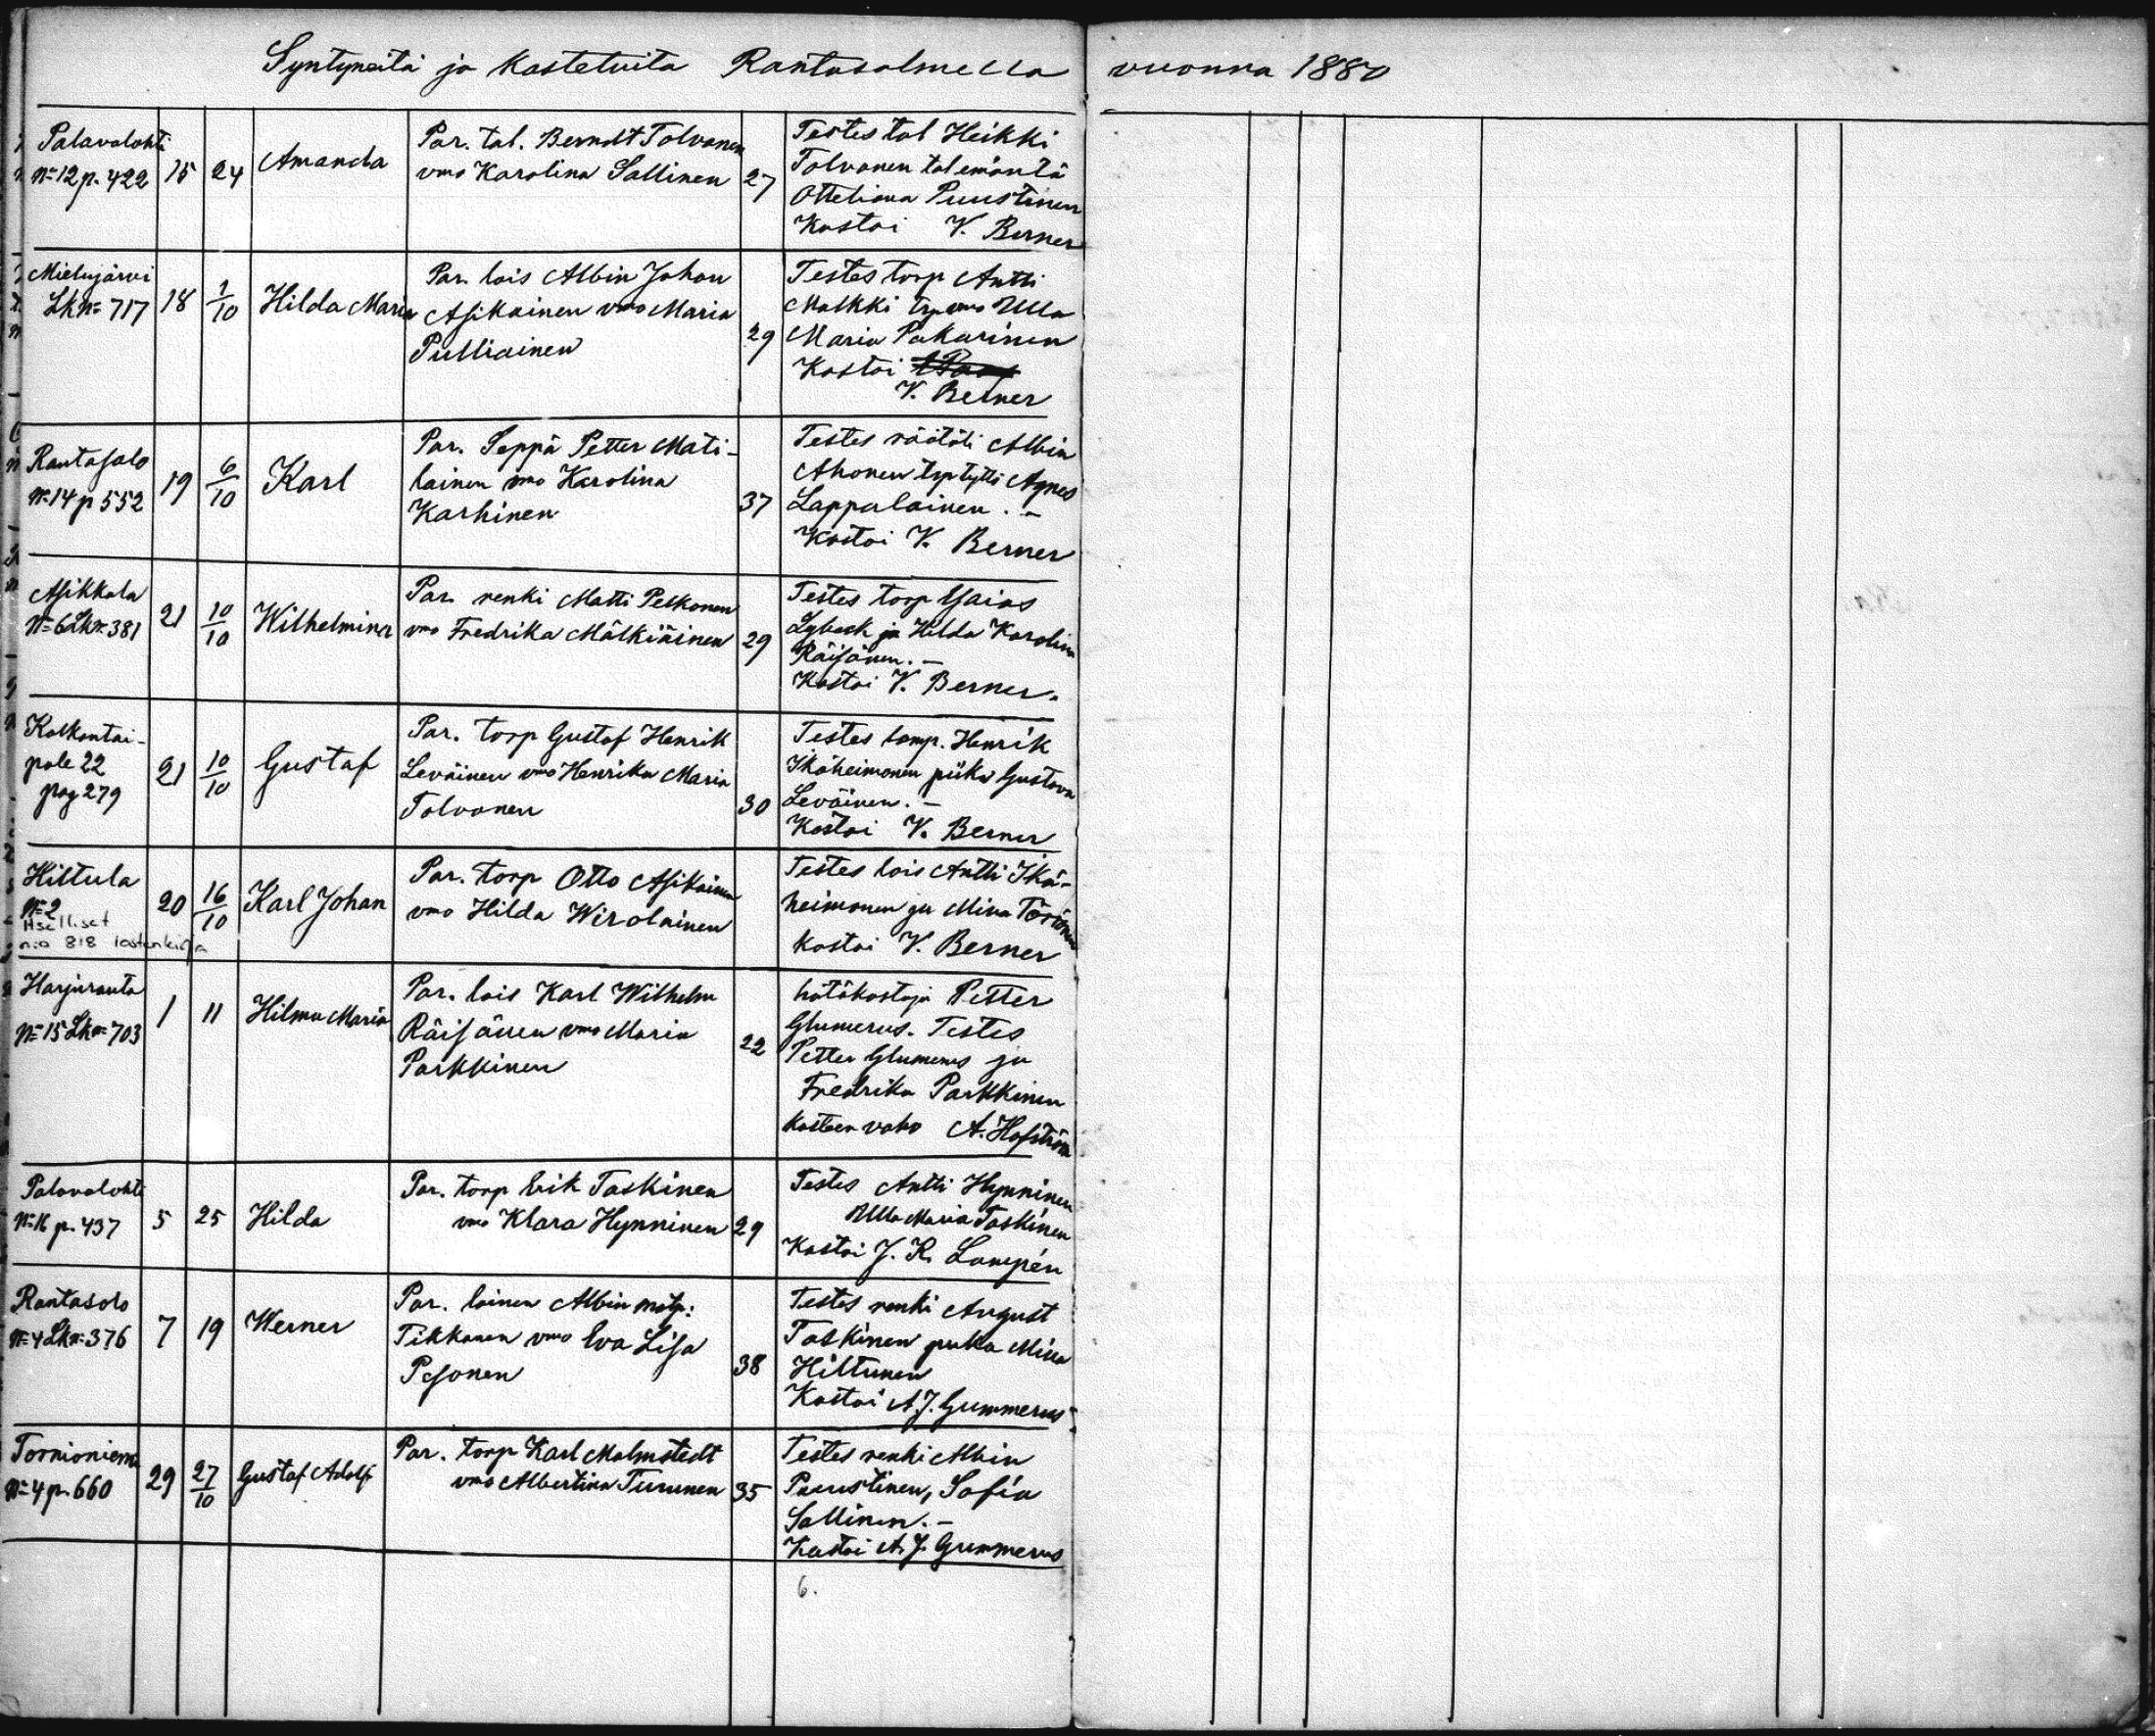 Syntyneitä ja Kastetuita Rantasalmella vuonna 1880
Palavalahti
No 12 p. 422 15 24 Amanda
Par. tal. Berndt Tolvanen
vmo Karolina Sallinen 27
Testes tal Heikki
Tolvanen tal emäntä
Otteliana Puustinen
Kastoi V. Berner
Mielujärvi
Lk No 717 18 1/10 Hilda Maria
Par. lois Albin Johan
Asikainen vmo Maria
Pulliainen 29
Testes torp Antti
Malkki trp vmo Ulla
Maria Pakarinen
Kastoi
V. Berner
Rantasalo
No 14 p 552 19 6/10 Karl
Par. Seppä Petter Mati-
lainen vmo Karolina
Karhinen 37
Testes räätäli Albin
Ahonen trp tyttö Agnes
Lappalainen. -
Kastoi V. Berner
Asikkala
No 6 Lk No 381 21 10/10 Wilhelmina
Par. renki Matti Pelkonen
vmo Fredrika Mälkiäinen 29
Testes torp Esaias
Lyback ja Hilda Karolina
Räisänen. -
Kastoi V. Berner.
Kolkontai-
pale 22
pag 279 21 10/10 Gustaf
Par. torp Gustaf Henrik
Leväinen vmo Henrika Maria
Tolvanen 30
Testes lamp. Henrik
Ikäheimonen piika Gustava
Leväinen. -
Kastoi V. Berner
Hiltula
No 2
Itselliset
n:o 818 lastenkirja
20 16/10 Karl Johan
Par. torp Otto Asikainen
vmo Hilda Wirolainen
Testes lois Antti Ikä-
heimonen ja Miina Törönen
Kastoi V. Berner
Harjuranta
No 15 Lk No 703 1 11 Hilma Maria
Par. lois Karl Wilhelm
Räisänen vmo Maria
Parkkinen 22
hätäkastaja Petter
Glumerus. Testes
Petter Glumerus ja
Fredrika Parkkinen
Kasteen vahv A. Hofström
Palavalahti
No 16 p. 437 5 25 Hilda
Par. torp Erik Taskinen
vmo Klara Hynninen 29
Testes Antti Hynninen
Ulla Maria Taskinen
Kastoi J. R. Lampén
Rantasalo
No 4 Lk No 376 7 19 Werner
Par. loinen Albin mstp:
Tikkanen vmo Eva Lisa
Pesonen 38
Testes renki August
Taskinen piika Miina
Hiltunen
Kastoi A. J. Gummerus
Tornioniemi
No 4 p. 660 29 27/10 Gustaf Adolf
Par. torp Karl Malmstedt
vmo Albertina Turunen 35
Testes renki Albin
Puustinen, Sofia
Sallinen. -
Kastoi A. J. Gummerus
6.